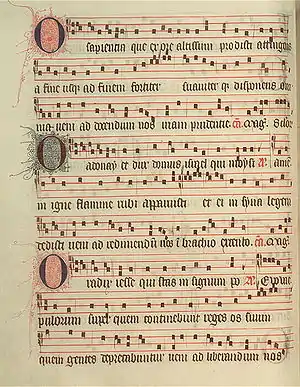 O sapientia que ex ore altissimi prodisti attingens
a fine usq ad finem fortiter suauiter q disponens o
nia ueni ad docendum nos uiam prudentie
O adonay et dux domus isrl qui moysi
in igne flamme rubi apparuisti et ei in syna legem
dedisti ueni ad redimendu nos i brachio extento
O radix iesse qui stas in signum po
pulorum super quem continebunt reges os suum
quem gentes deprecabuntur ueni ad liberandum nos